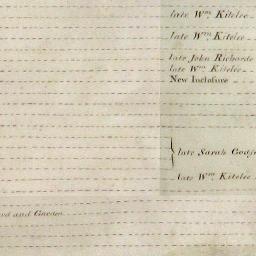 late Wm Kitelee
late Wm Kitelee
late John Richards
late Wm Kitelee
New Inclosure
late Sarah
late Wm Kitelee
and Garden